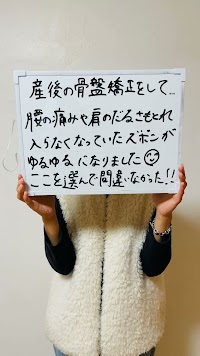 産後の骨盤矯正をして…
腰の痛みや肩のだるさもとれ
入らなくなっていたズボンが
ゆるゆるになりました☺
ここを選んで間違いなかった!!